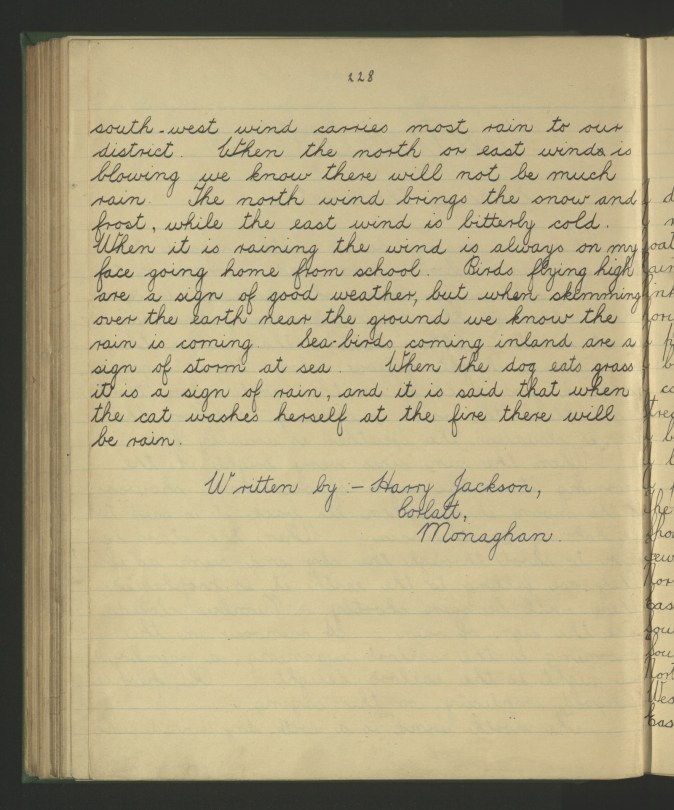 228
south-west wind carries most rain to our
district. When the north or east winds is
blowing we know there will not be much
rain. The north wind brings the snow and
frost, while the east wind is bitterly cold.
When it is raining the wind is always on my
face going home from school. Birds flying high
are a sign of good weather, but when skimming
over the earth near the ground we know the
rain is coming. Sea-birds coming inland are a
sign of storm at sea. When the dog eats grass
it is a sign of rain, and it is said that when
the cat washes herself at the fire there will
be rain.
Written by :- Harry Jackson,
Corlatt,
Monaghan.